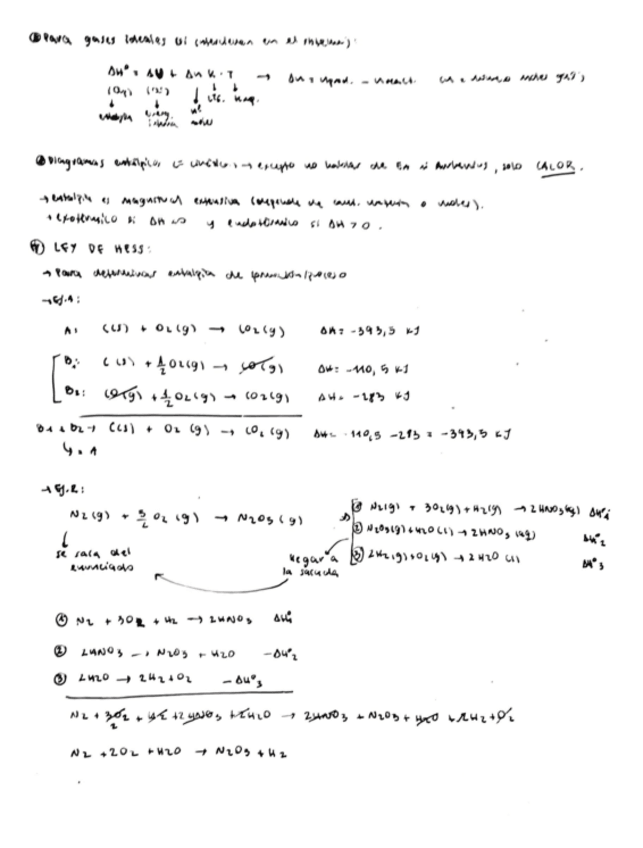 Para gases ideales (si intervienen en el sistema):
ΔH° = ΔU + Δn R · T → Δn = nprod. - nreact. (n = número moles gas)
(Qp) (Qv)
cte. temp.
entalpía energ. interna nº moles
Diagramas entálpicos = cinética, → excepto no hablar de EA ni Arrhenius, solo CALOR.
→ entalpía es magnitud extensiva (depende de cant. materia o moles).
+ exotérmico si ΔH <0 y endotérmico si ΔH > 0.
④ LEY DE HESS:
→ Para determinar entalpía de formación/proceso
→ Ej.1:
A: C(s) + O2(g) → CO2(g) ΔH = -393,5 kJ
B1: C(s) + 1/2 O2(g) → CO(g) ΔH = -110,5 kJ
B2: CO(g) + 1/2 O2(g) → CO2(g) ΔH = -283 kJ
B1 + B2 → C(s) + O2(g) → CO2(g) ΔH = -110,5 - 283 = -393,5 kJ
↳ = A
→ Ej.2:
N2(g) + 5/2 O2(g) → N2O5(g)
① N2(g) + 3O2(g) + H2(g) → 2HNO3(g) ΔH°1
② N2O5(g) + H2O(l) → 2HNO3(g) ΔH°2
③ 2H2(g) + O2(g) → 2H2O(l) ΔH°3
se saca del enunciado
llegar a la sacada
① N2 + 3O2 + H2 → 2HNO3 ΔH°1
② 2HNO3 → N2O5 + H2O -ΔH°2
③ 2H2O → 2H2 + O2 -ΔH°3
N2 + 3O2 + H2 + 2HNO3 + 2H2O → 2HNO3 + N2O5 + H2O + 2H2 + O2
N2 + 2O2 + H2O → N2O5 + H2